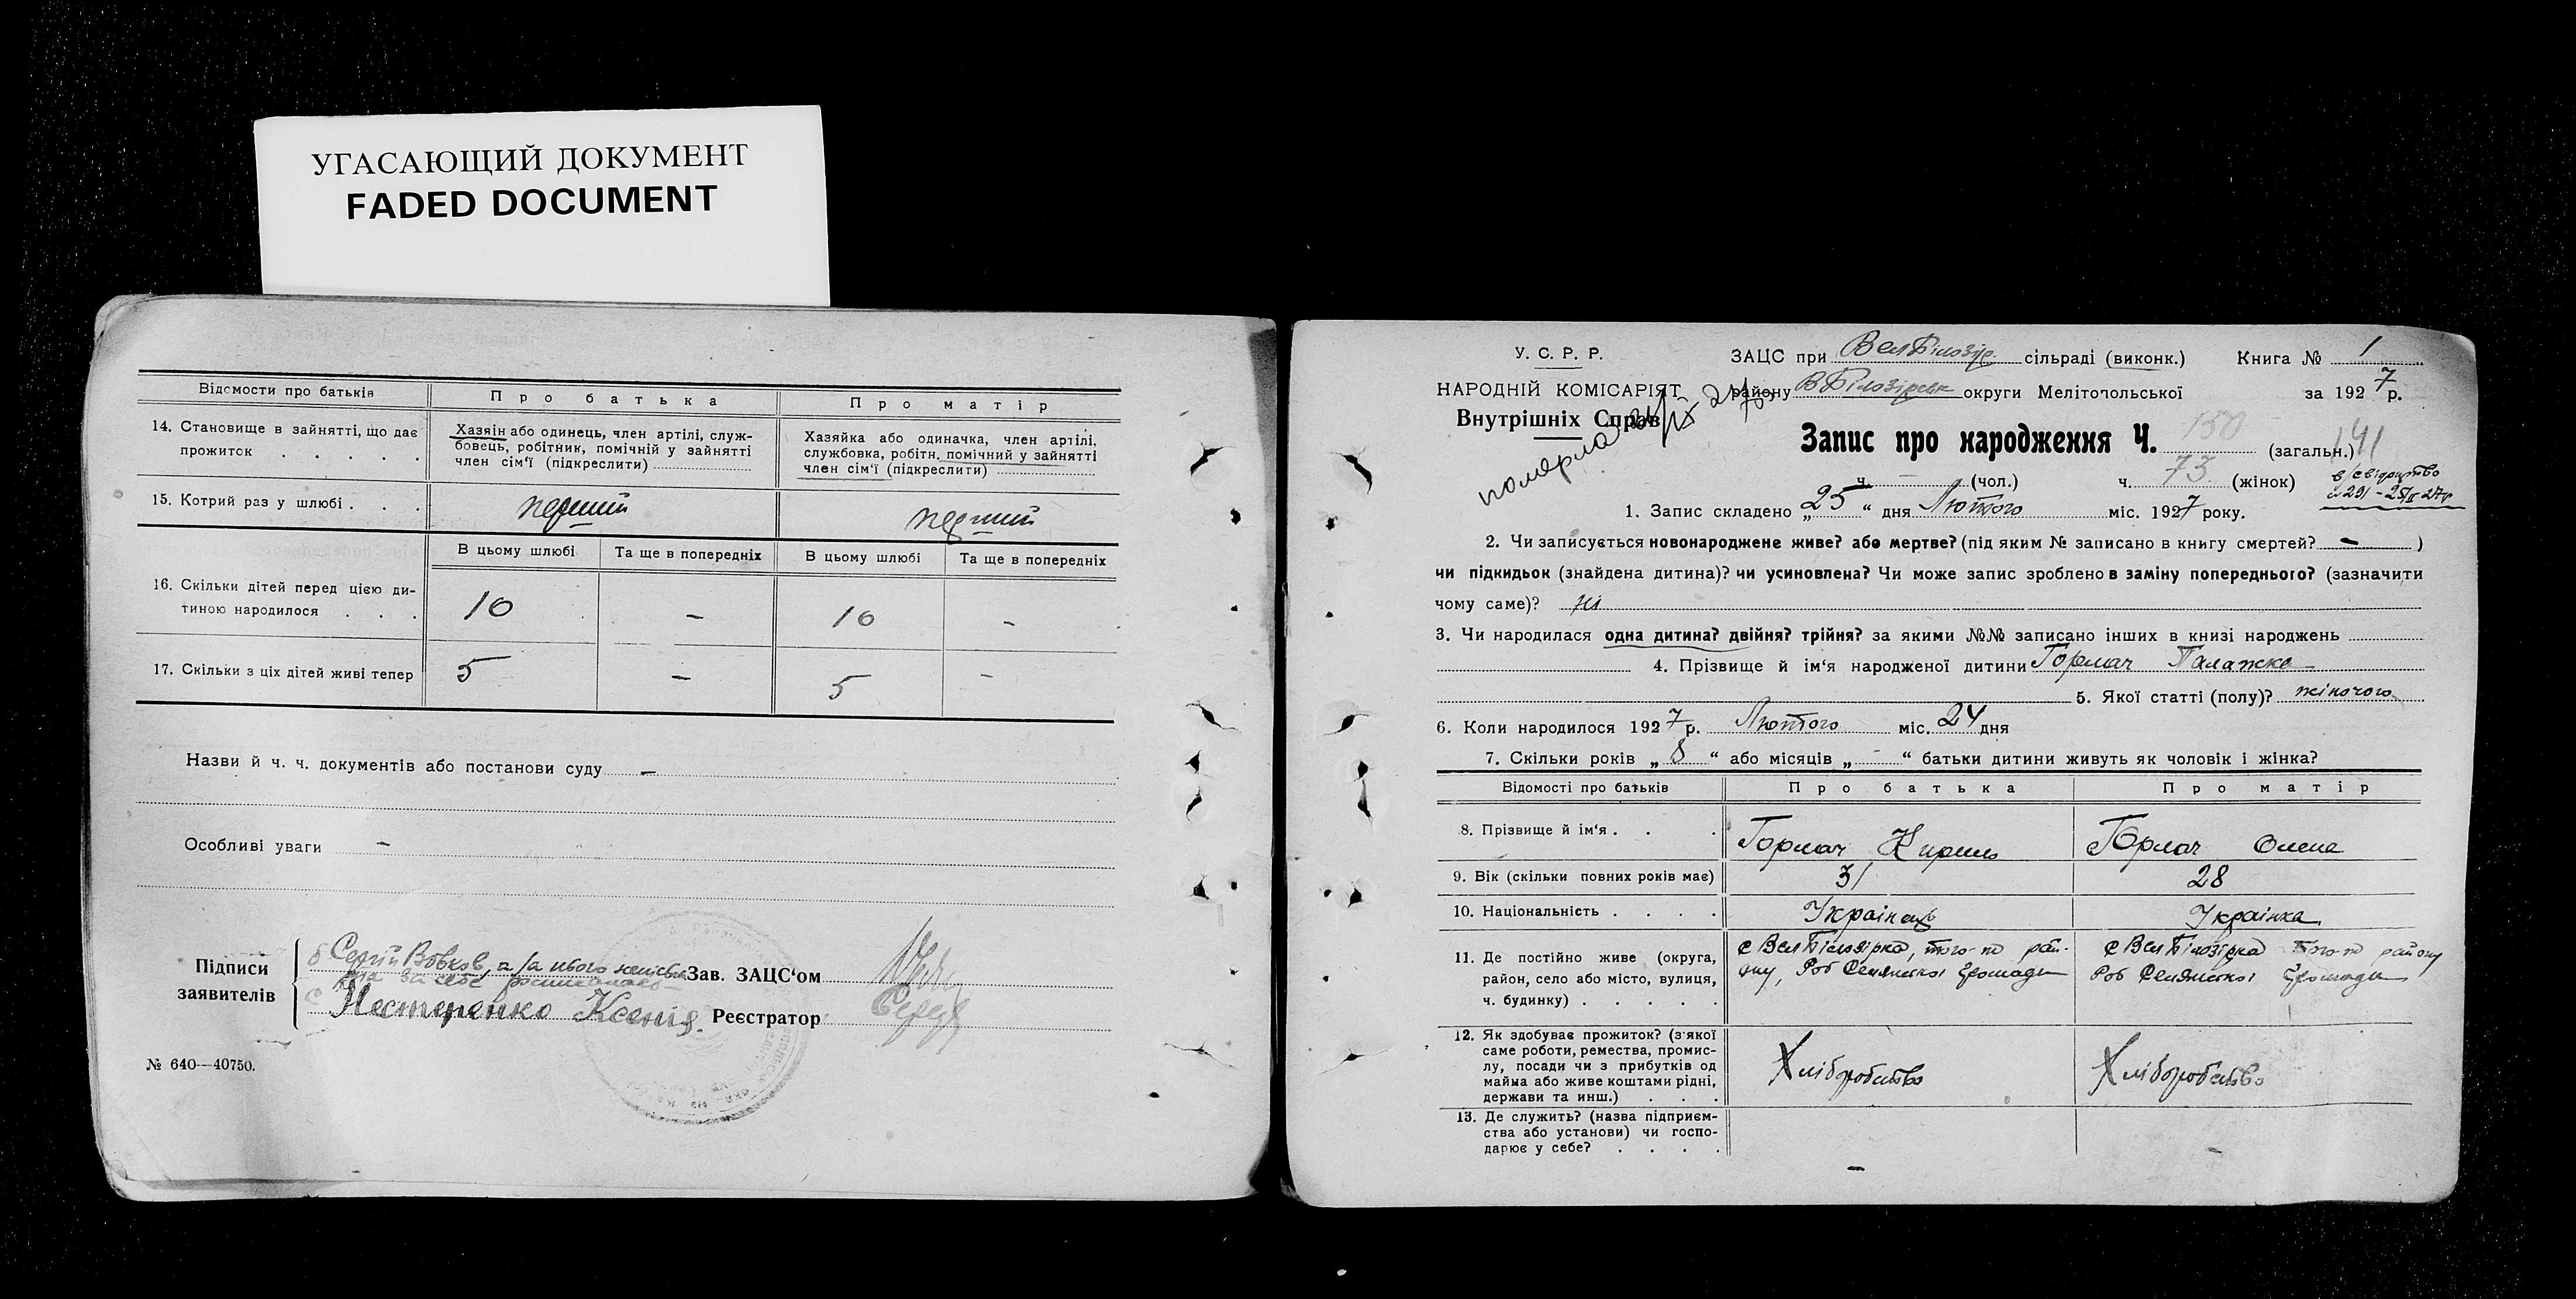 УГАСАЮЩИЙ ДОКУМЕНТ
FADED DOCUMENT
Відомости про батьків
Про батька
Про матір
14. Становище в зайнятті, що дає прожиток . . . . .
Хазяін або одинець, член артілі, служ-
бовець, робітник, помічній у зайнятті
член сім'ї (підкреслити)
Хазяйка або одиначка, член артілі,
службовка, робітн. помічний у зайнятті
член сім'ї (підкреслити)
15. Котрий раз у шлюбі . . .
перший
перший
В цьому шлюбі
Та ще в попередніх
В цьому шлюбі
Та ще в попередніх
16. Скільки дітей перед цією ди-
тиною народилося . . .
10 - 10 -
17. Скільки з ціх дітей живі тепер
5 - 5 -
Назви й ч. ч. документів або постанови суду —
Особливі уваги —
Підписи
заявителів
Сергій Вовков, а за нього
Нестеренко Ксенія
Зав. ЗАЦС'ом
Реєстратор
№ 640—40750.
У. С. Р. Р.
НАРОДНІЙ КОМІСАРІЯТ
Внутрішніх Справ
померла
ЗАЦС при Вел Білозір. сільраді (виконк.) Книга № 1
району В Білозірськ округи Мелітопольської за 1927 р.
Запис про народження Ч. 150 (загальн.) 141
ч. — (чол.) ч. 73 (жінок)
1. Запис складено „25“ дня Лютого міс. 1927 року.
2. Чи записується новонароджене живе? або мертве? (під яким № записано в книгу смертей? — )
чи підкидьок (знайдена дитина)? чи усиновлена? Чи може запис зроблено в заміну попереднього? (зазначити
чому саме)? ні
3. Чи народилася одна дитина? двійня? трійня? за якими №№ записано інших в книзі народжень
4. Прізвище й ім'я народженої дитини Горлач Палажка
5. Якої статті (полу)? жіночого
6. Коли народилося 1927 р. Лютого міс. 24 дня
7. Скільки років „8“ або місяців „-“ батьки дитини живуть як чоловік і жінка?
Відомості про батьків
Про батька
Про матір
8. Прізвище й ім'я . . .
Горлач Кирило
Горлач Олена
9. Вік (скільки повних років має)
31
28
10. Національність . . . .
Українець
Українка
11. Де постійно живе (округа,
район, село або місто, вулиця,
ч. будинку) . . . . .
с Вел Білозірка, того-ж рай-
ону, Роб Селянської Громади
с Вел Білозірка того-ж району
Роб Селянської Громади
12. Як здобуває прожиток? (з якої
саме роботи, ремества, промис-
лу, посади чи з прибутків од
майна або живе коштами рідні,
держави та инш.) . . .
Хліборобство
Хліборобство
13. Де служить? (назва підприєм-
ства або установи) чи госпо-
дарює у себе? . . . .
—
—